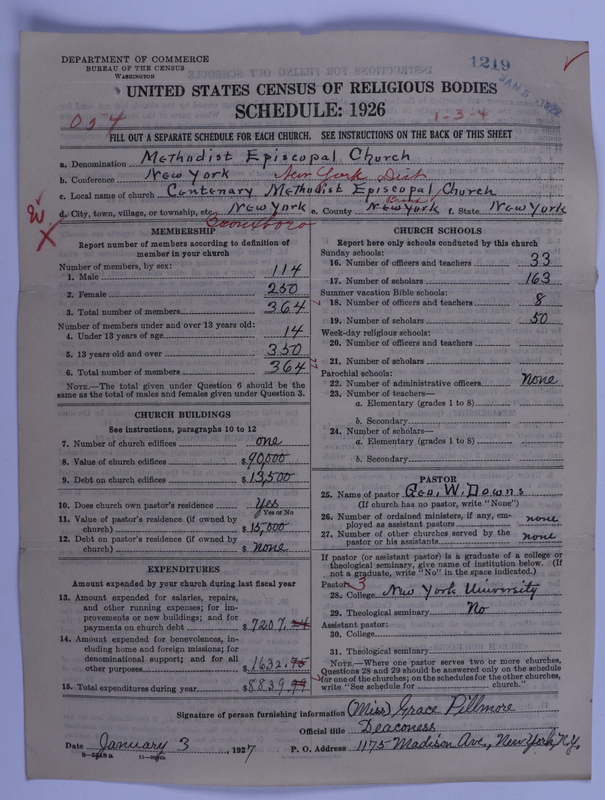 DEPARTMENT OF COMMERCE
BUREAU OF THE CENSUS
WASHINGTON
1219
UNITED STATES CENSUS OF RELIGIOUS BODIES
SCHEDULE: 1926
054
1-3-4
FILL OUT A SEPARATE SCHEDULE FOR EACH CHURCH. SEE INSTRUCTIONS ON THE BACK OF THIS SHEET
a. Denomination Methodist Episcopal Church
b. Conference New York New York Dist
c. Local name of church Centenary Methodist Episcopal Church
d. City, town, village, or township, etc. New York e. County New York f. State New York
MEMBERSHIP
Report number of members according to definition of
member in your church
Number of members, by sex:
1. Male 114
2. Female 250
3. Total number of members 364
Number of members under and over 13 years old:
4. Under 13 years of age 14
5. 13 years old and over 350
6. Total number of members 364
NOTE.—The total given under Question 6 should be the
same as the total of males and females given under Question 3.
CHURCH BUILDINGS
See instructions, paragraphs 10 to 12
7. Number of church edifices one
8. Value of church edifices $90,000
9. Debt on church edifices $13,500
10. Does church own pastor's residence Yes
Yes or No
11. Value of pastor's residence (if owned by
church) $15,000
12. Debt on pastor's residence (if owned by
church) $none
EXPENDITURES
Amount expended by your church during last fiscal year
13. Amount expended for salaries, repairs,
and other running expenses; for im-
provements or new buildings; and for
payments on church debt $7207.24
14. Amount expended for benevolences, in-
cluding home and foreign missions; for
denominational support; and for all
other purposes $1632.75
15. Total expenditures during year $8839.99
CHURCH SCHOOLS
Report here only schools conducted by this church
Sunday schools:
16. Number of officers and teachers 33
17. Number of scholars 163
Summer vacation Bible schools:
18. Number of officers and teachers 8
19. Number of scholars 50
Week-day religious schools:
20. Number of officers and teachers
21. Number of scholars
Parochial schools:
22. Number of administrative officers none
23. Number of teachers—
a. Elementary (grades 1 to 8)
b. Secondary
24. Number of scholars—
a. Elementary (grades 1 to 8)
b. Secondary
PASTOR
25. Name of pastor Geo. W. Downs
(If church has no pastor, write "None")
26. Number of ordained ministers, if any, em-
ployed as assistant pastors none
27. Number of other churches served by the
pastor or his assistants none
If pastor (or assistant pastor) is a graduate of a college or
theological seminary, give name of institution below. (If
not a graduate, write "No" in the space indicated.)
Pastor: 3
28. College New York University
29. Theological seminary No
Assistant pastor:
30. College
31. Theological seminary
NOTE.—Where one pastor serves two or more churches,
Questions 28 and 29 should be answered only on the schedule
for one of the churches; on the schedules for the other churches,
write "See schedule for church."
Signature of person furnishing information (Miss) Grace Pillmore
Official title Deaconess
Date January 3, 1927 P. O. Address 1175 Madison Ave., New York, N.Y.